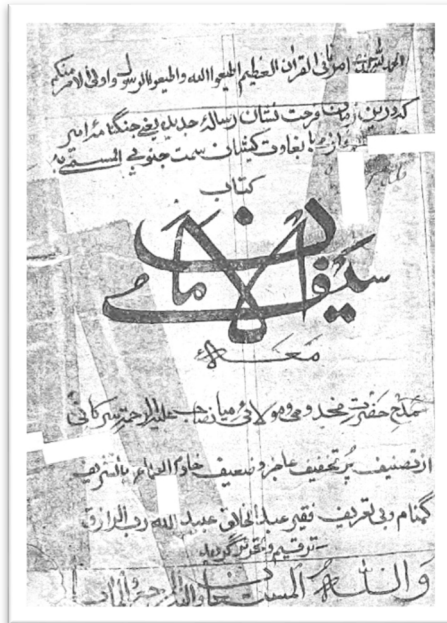 الحمد لله امرنا فی القرآن العظیم اطیعوا الله واطیعوا الرسول واولی الامر منکم
که درین زمان فرحت نشان رسالهٔ جدید یعنی جنگنامهٔ امیر
با بغاوت کیشان سمت جنوبی المسمی به
کتاب
سیف الامان
معه
مدح حضرت مخدومی و مولائی میانصاحب علیه الرحمة سرکانی
از تصنیف پر تخفیف عاجز وضعیف خادم العلماء بالتشریف
گمنام وبی تعریف فقیر عبد الخالق عبید الله رب الرازق
ترقیم و تحریر گردید
والله المستعان